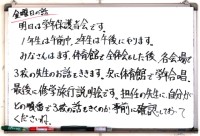 金曜日の話
明日は学年保護者会です。
1年生は午前中、2年生は午後にやります。
みなさんはまず、体育館で全体会をした後、各会場で
3校の先生のお話をききます。次に体育館で学年合唱、
最後に修学旅行説明会です。担任の先生に、自分が
どの順番で3校の話をきくのか事前に確認しておいて
くださいね。